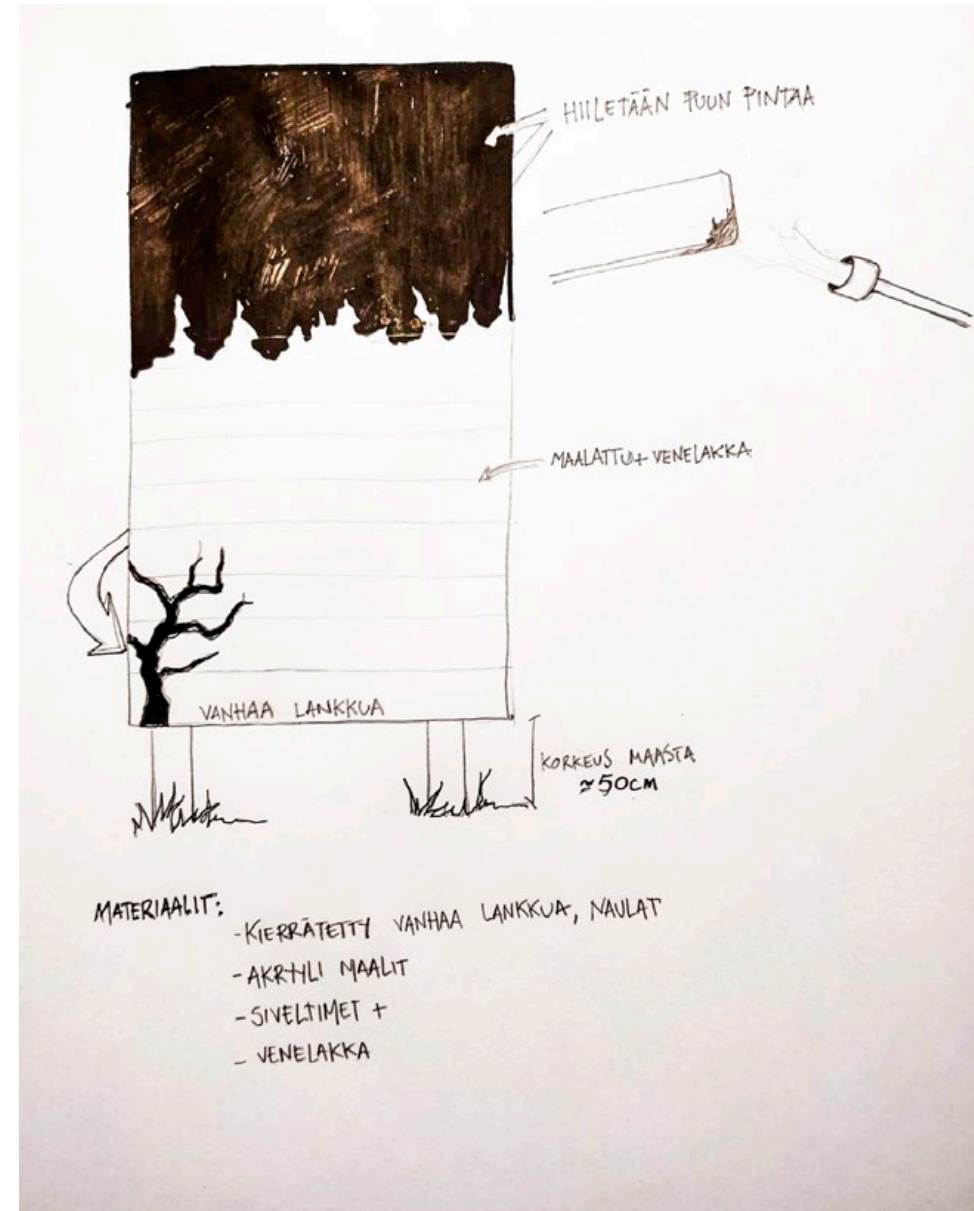 HIILETÄÄN PUUN PINTAA
MAALATTU + VENELAKKA
VANHAA LANKKUA
KORKEUS MAASTA
≈50CM
MATERIAALIT:
-KIERRÄTETTY VANHAA LANKKUA, NAULAT
-AKRYLI MAALIT
-SIVELTIMET +
- VENELAKKA